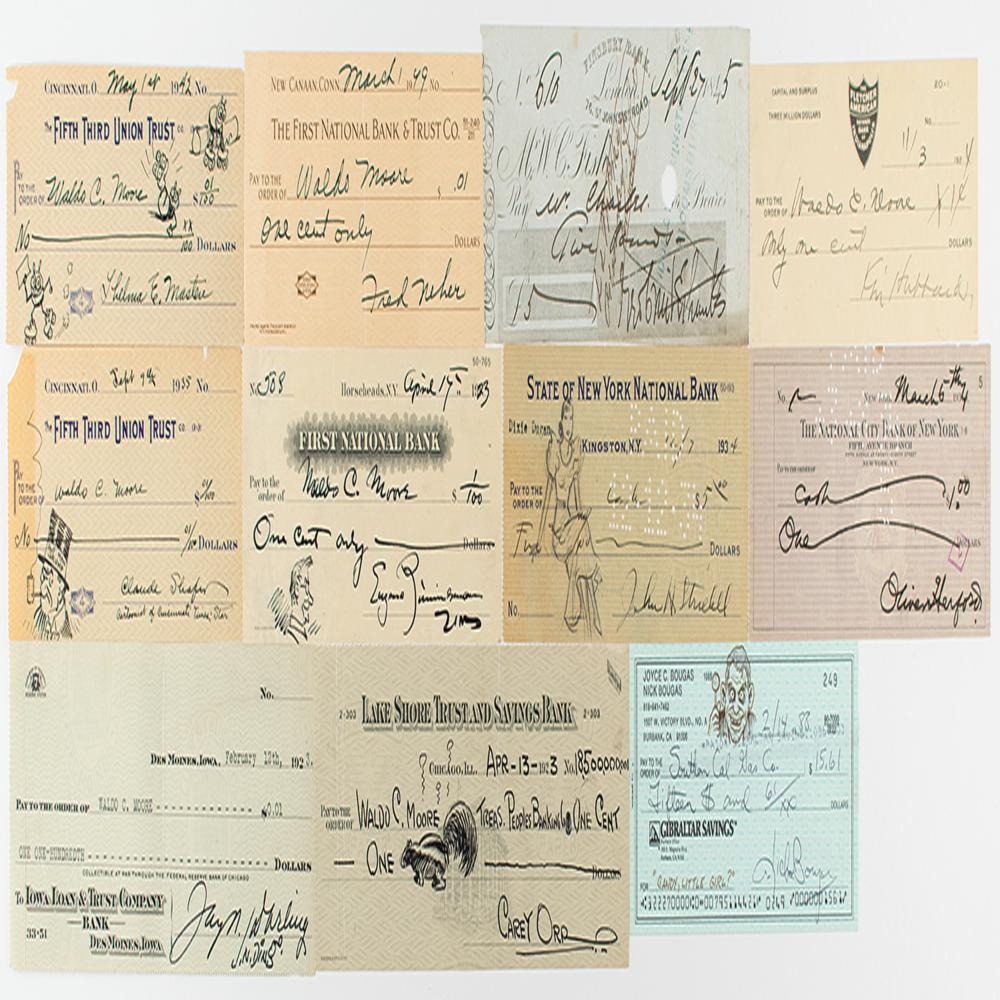 CINCINNATI, O. May 14 1942 No
The FIFTH THIRD UNION TRUST CO.
PAY TO THE ORDER OF Waldo C. Moore $ 01/100
No xx/100 DOLLARS
Thelma E. Masters
NEW CANAAN, CONN. March 1 1949 No.
THE FIRST NATIONAL BANK & TRUST CO.
PAY TO THE ORDER OF Waldo Moore $ .01
One cent only DOLLARS
Fred Neher
FINSBURY BANK
London
ST. JOHN STREET ROAD
No. 616 Sept 27
Pay Mr. Charles or Bearer
Five Pounds
£5
CAPITAL AND SURPLUS
THREE MILLION DOLLARS
20-1
No.
11/3 192
PAY TO THE ORDER OF Waldo C. Moore
Only one cent DOLLARS
Kin Hubbard
CINCINNATI, O. Sept 9th 1935 No
The FIFTH THIRD UNION TRUST CO. 13-31
PAY TO THE ORDER OF Waldo C. Moore $ 01/100
No 01/100 DOLLARS
Claude Shafer
Cartoonist of Cincinnati Times-Star
50-765
No. 508 Horseheads, N.Y. April 17th 1933
FIRST NATIONAL BANK
Pay to the order of Waldo C. Moore $ 1/100
One Cent only Dollars
Eugene Zimmerman
Zim
STATE OF NEW YORK NATIONAL BANK
Dixie Dugan
KINGSTON, N.Y. 11/7 1934
PAY TO THE ORDER OF Cash $5
Five DOLLARS
No.
John H Striebel
No. New York, March 5th
THE NATIONAL CITY BANK OF NEW YORK
FIFTH AVENUE BRANCH
FIFTH AVENUE AT TWENTY-EIGHTH STREET
NEW YORK, N.Y.
PAY TO THE ORDER OF
Cash $1.00
One DOLLARS
Oliver Herford
No.
DES MOINES, IOWA, February 12th, 1923.
PAY TO THE ORDER OF WALDO C. MOORE $0.01
ONE ONE-HUNDREDTH DOLLARS
COLLECTIBLE AT PAR THROUGH THE FEDERAL RESERVE BANK OF CHICAGO
To IOWA LOAN & TRUST COMPANY
BANK
33-51 DES MOINES, IOWA
Jay N. Darling
J.N. Ding
2-303 LAKE SHORE TRUST AND SAVINGS BANK 2-303
CHICAGO, ILL. APR-13-1923 No. 1850000000
PAY TO THE ORDER OF WALDO C. MOORE TREAS. PEOPLES BANKING CO ONE CENT
ONE DOLLARS
CAREY ORR
JOYCE C. BOUGAS
NICK BOUGAS
818-841-7462
1507 W. VICTORY BLVD., NO. A
BURBANK, CA 91506
249
2/14 83
PAY TO THE ORDER OF Southern Cal Gas Co. $15.61
Fifteen $ and 61/xx DOLLARS
GIBRALTAR SAVINGS
FOR "CANDY, LITTLE GIRL?"